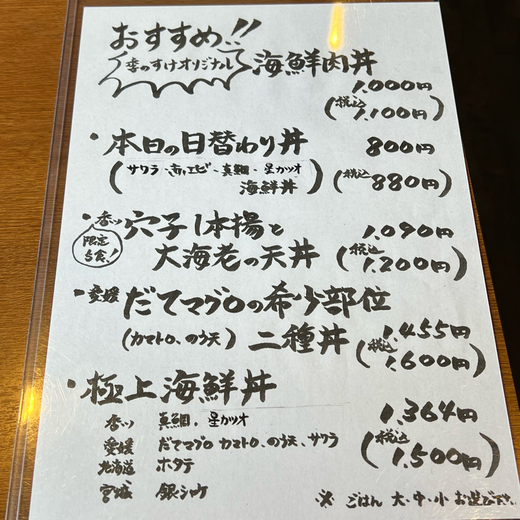 おすすめ!!
季のすけオリジナル 海鮮肉丼
1.000円
(税込 1.100円)
・本日の日替わり丼 800円
(サワラ・赤エビ・真鯛・星カツオ
海鮮丼) (税込 880円)
・香川 穴子1本揚と 1.090円
限定5食! 大海老の天丼 (税込 1.200円)
・愛媛 だてマグロの希少部位
(カマトロ、のう天) 二種丼 1.455円
(税込 1.600円)
・極上海鮮丼
香川 真鯛、星カツオ 1.364円
愛媛 だてマグロ カマトロ、のう天、サワラ (税込
北海道 ホタテ 1.500円)
宮城 銀シャケ
※ ごはん 大・中・小 お選び